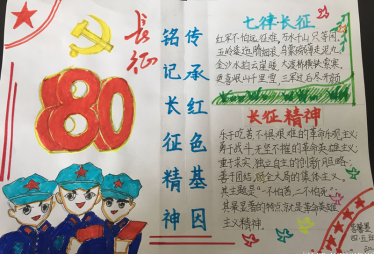 长征
80
传承红色基因
铭记长征精神
七律长征
红军不怕远征难,万水千山只等闲。
五岭逶迤腾细浪,乌蒙磅礴走泥丸。
金沙水拍云崖暖,大渡桥横铁索寒。
更喜岷山千里雪,三军过后尽开颜
长征精神
乐于吃苦不惧艰难的革命乐观主义;
勇于战斗无坚不摧的革命英雄主义;
重于求实,独立自主的创新胆略;
善于团结,顾全大局的集体主义。
其主题是“一不怕苦,二不怕死”
其最显著的特点就是革命英雄
主义精神。